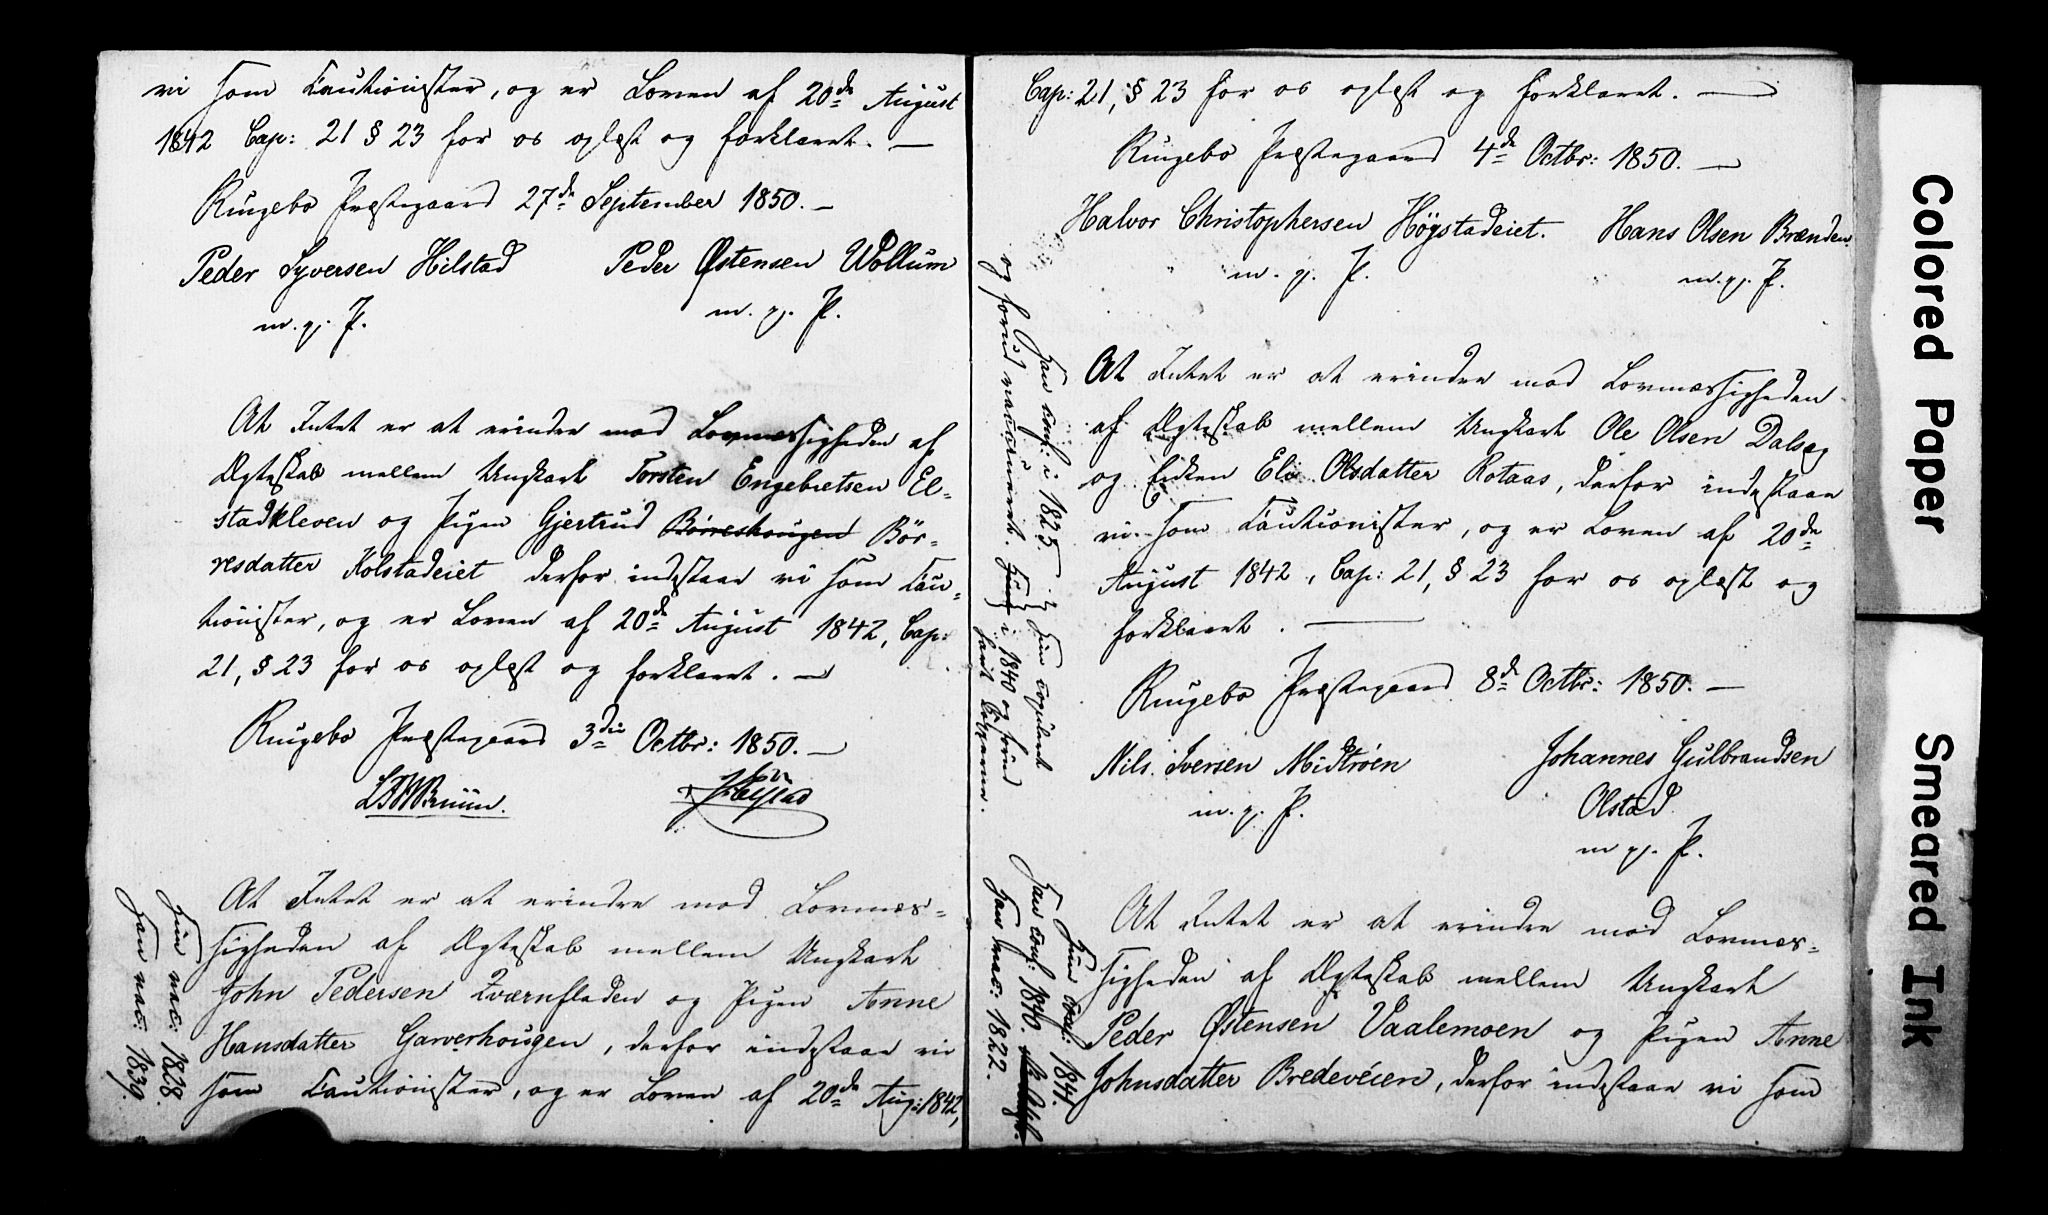 vi som Cautionister, og er Loven af 20de August
1842 Cap: 21 § 23 for os oplæst og forklaret. —
Ringebo Præstegaard 27de September 1850. —
Peder Syversen Hilstad Peder Østensen Wollum
m. p. P. m. p. P.
At Intet er at erindre mod Lovmæssigheden af
Ægteskab mellem Ungkarl Torsten Engebretsen El-
stadkleven og Pigen Gjertrud Börreshougen Bör-
resdatter Kolstadeiet derfor indestaae vi som Cau-
tionister, og er Loven af 20de August 1842, Cap:
21, § 23 for os oplæst og forklaret. —
Ringebo Præstegaard 3die Octbr: 1850. —
Bruun.
At Intet er at erindre mod Lovmæs-
sigheden af Ægteskab mellem Ungkarl
John Pedersen Kværnfladen og Pigen Anne
Hansdatter Garverhougen, derfor indestaae vi
som Cautionister, og er Loven af 20de Aug: 1842,
Hun vac: 1828.
Han vac: 1839.
Cap: 21, § 23 for os oplæst og forklaret. —
Ringebo Præstegaard 4de Octbr: 1850. —
Halvor Christophersen Högstadeiet. Hans Olsen Brænden
m. p. P. m. p. P.
Han conf: i 1825.
og forud vaccineret.
Hun copuleret
i 1840 og forud
havt Kopperne.
At Intet er at erindre mod Lovmæssigheden
af Ægteskab mellem Ungkarl Ole Olsen Dalseg
og Enken Eli Olsdatter Rotaas, derfor indestaae
vi som Cautionister, og er Loven af 20de
August 1842, Cap: 21, § 23 for os oplæst og
forklaret. —
Ringebo Præstegaard 8de Octbr: 1850. —
Nils Iversen Midtröen Johannes Gulbrandsen
m. p. P. Olstad
m p. P.
At Intet er at erindre mod Lovmæs-
sigheden af Ægteskab mellem Ungkarl
Peder Østensen Vaalemoen og Pigen Anne
Johnsdatter Bredeveien, derfor indestaae vi som
Hun conf: 1841.
Han conf: 1840
Han vac: 1822.
Colored Paper
Smeared Ink